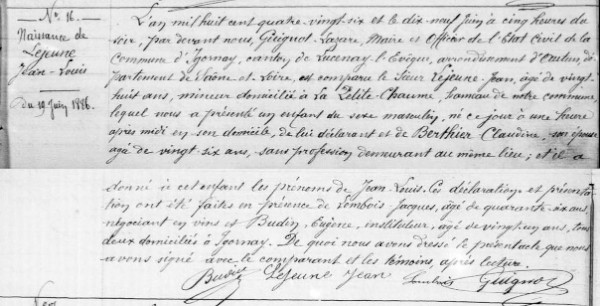 N° 16.
Naissance de
Lejeune
Jean-Louis
du 19 Juin 1886.
L'an mil huit cent quatre-vingt-six et le dix-neuf Juin à cinq heures du
soir, par devant nous, Guignot Lazare, Maire et Officier de l'Etat Civil de la
Commune d'Igornay, canton de Lucenay-l'Evêque, arrondissement d'Autun, dé-
partement de Saône et Loire, est comparu le Sieur Lejeune Jean, âgé de vingt-
huit ans, mineur domicilié à La Petite Chaume, hameau de notre commune
lequel nous a présenté un enfant du sexe masculin, né ce jour à une heure
après midi en son domicile, de lui déclarant et de Berthier Claudine, son épouse
agé de vingt-six ans, sans profession demeurant au même lieu; et il a
donné à cet enfant les prénoms de Jean-Louis. Ces déclaration et présenta-
tion ont été faites en présence de Lombois Jacques, âgé de quarante-six ans,
négociant en vins et Budin, Eugène, instituteur, âgé de vingt-un ans, tous
deux domiciliés à Igornay. De quoi nous avons dressé le présent acte que nous
avons signé avec le comparant et les témoins, après lecture.
Budin Lejeune Jean Lombois Guignot